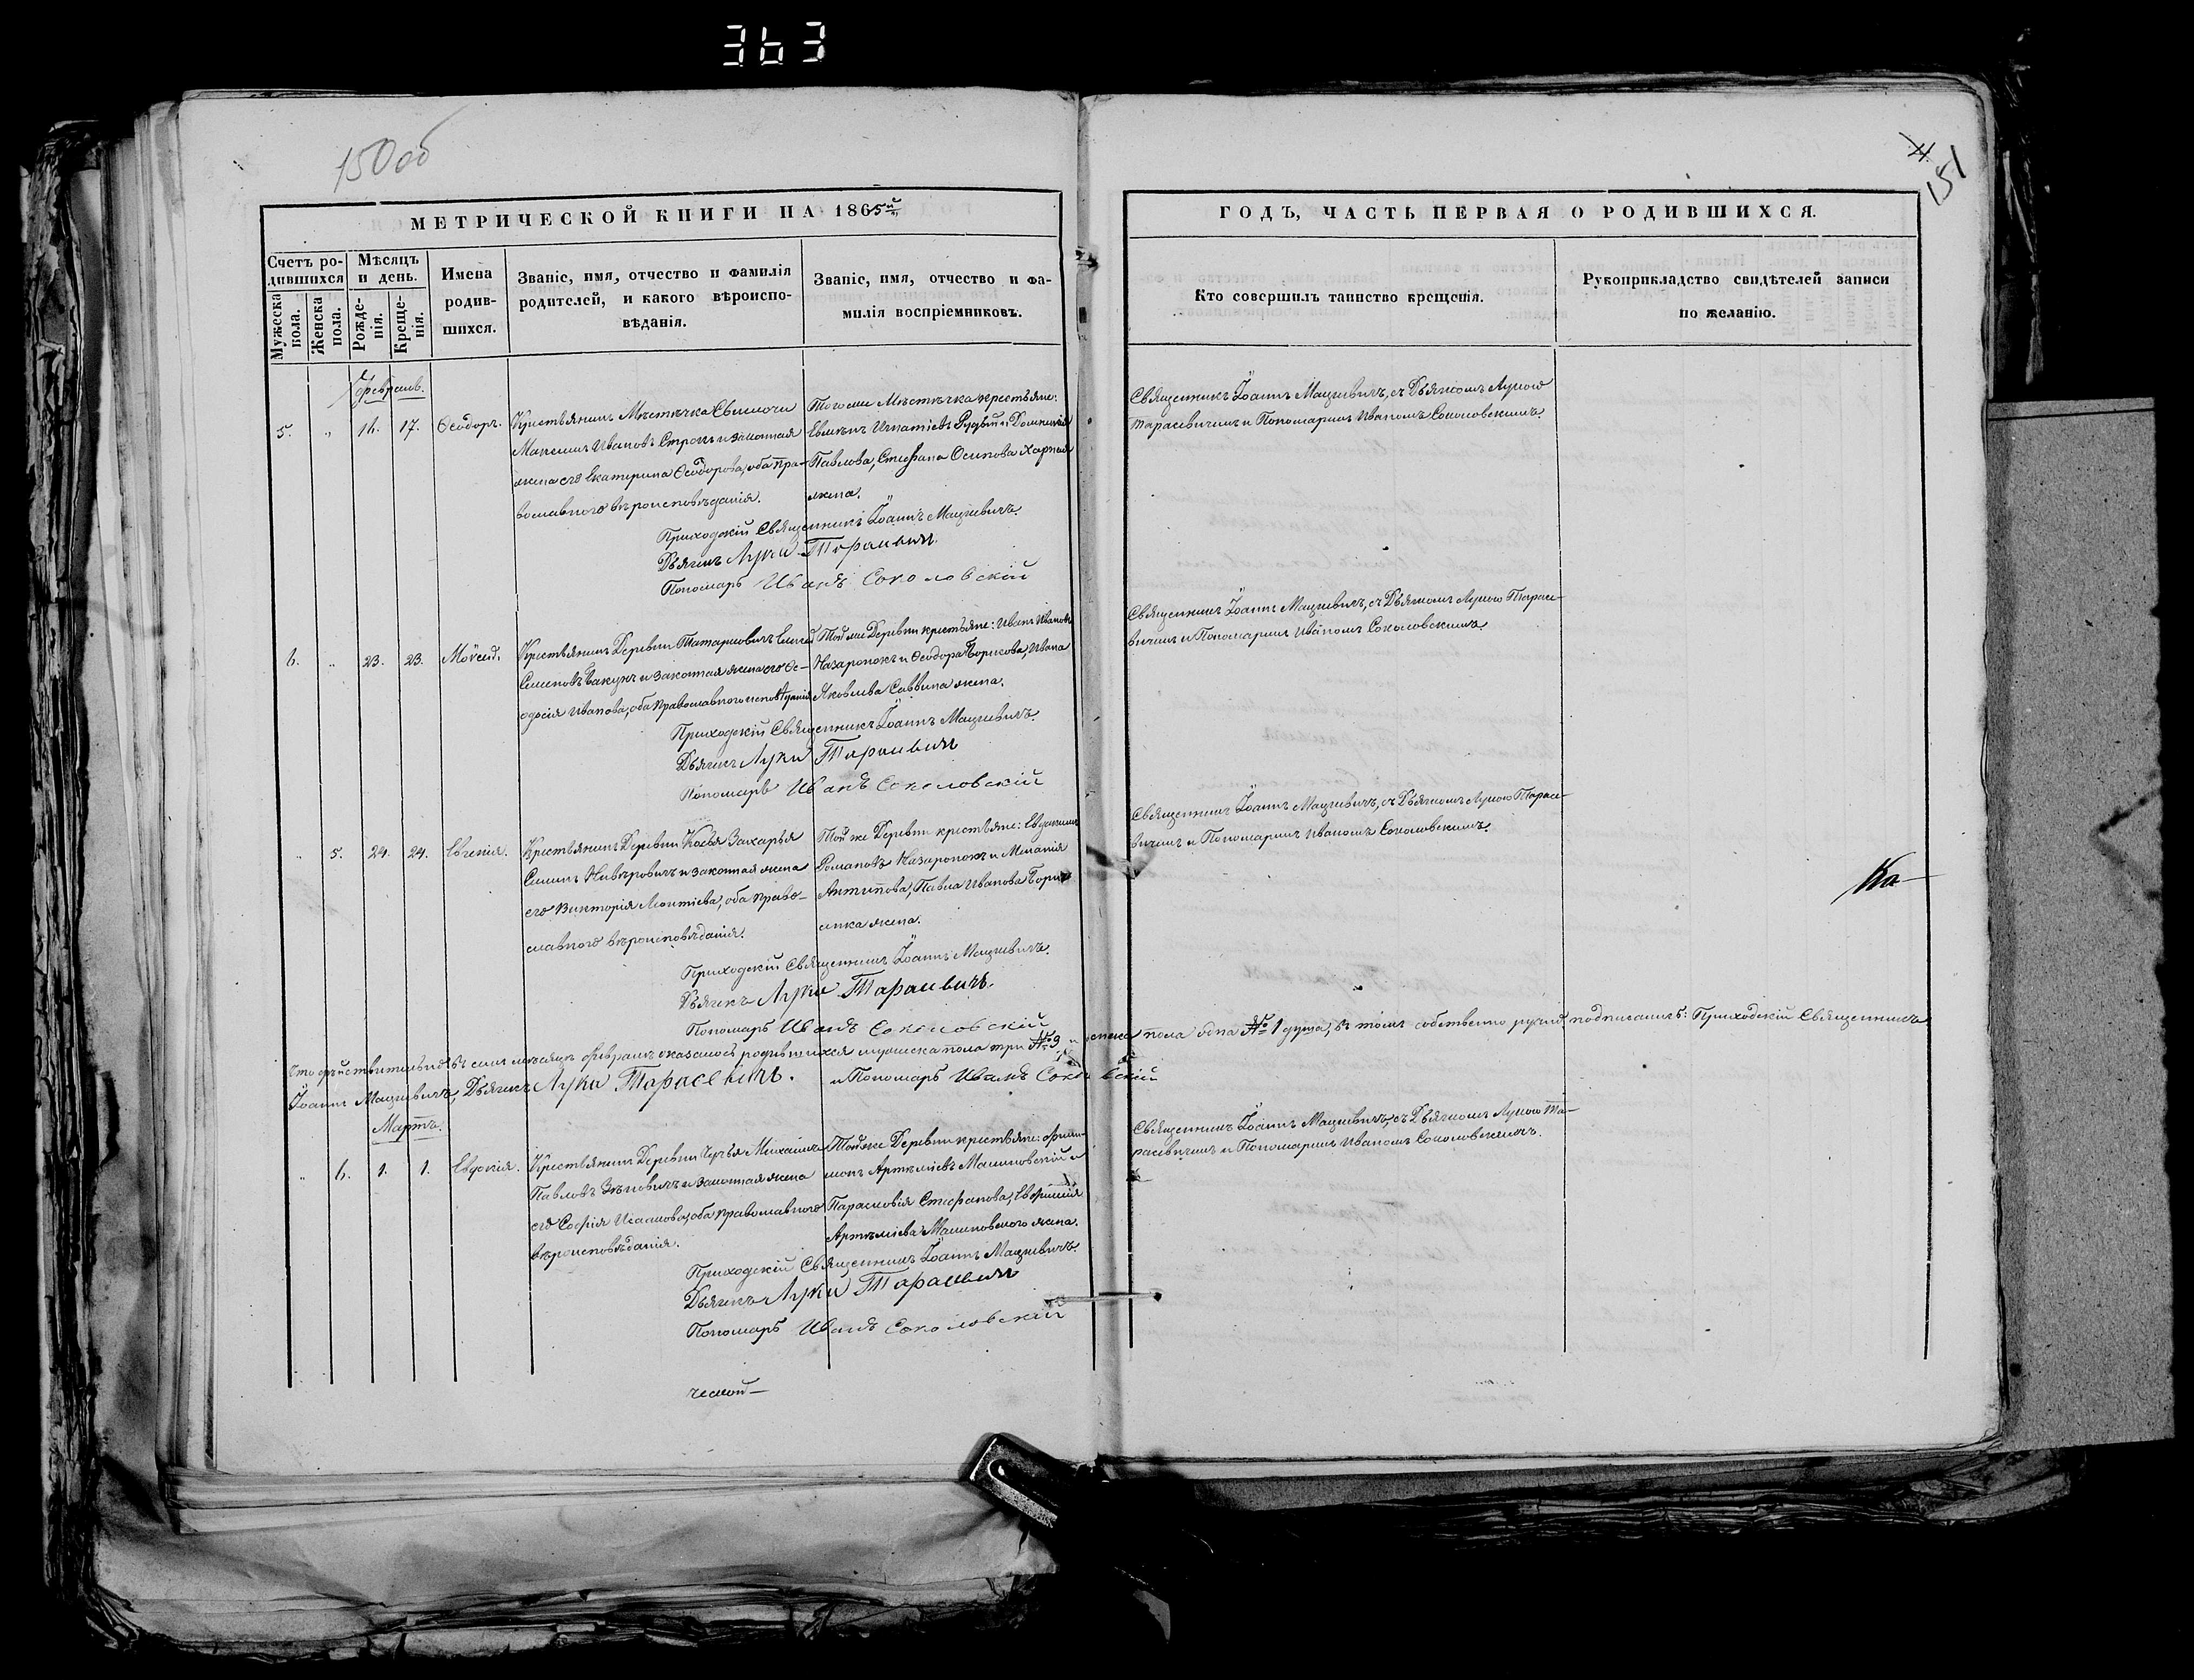 363
150 об
4
151
МЕТРИЧЕСКОЙ КНИГИ НА 1865й
ГОДЪ, ЧАСТЬ ПЕРВАЯ О РОДИВШИХСЯ.
Счетъ родившихся
Мужеска пола.
Женска пола.
Мѣсяцъ и день.
Рожденія.
Крещенія.
Имена родившихся.
Званіе, имя, отчество и фамилія родителей, и какого вѣроисповѣданія.
Званіе, имя, отчество и фамилія воспріемниковъ.
Кто совершилъ таинство крещенія.
Рукоприкладство свидѣтелей записи по желанію.
Февраль.
5. " 16. 17. Ѳеодоръ.
Крестьянинъ Мѣстечка Свислочи
Максимъ Ивановъ и законная
жена его Екатерина Ѳеодорова, оба пра-
вославного вѣроисповѣданія.
Того же Мѣстечка крестьяне:
Игнатіевъ Рудый и Доминикія
Павлова, Стефана Осипова
жена.
Священникъ Іоаннъ Мацкевичъ, съ Дьячкомъ Лукою
Тарасевичемъ и Пономаремъ Иваномъ Соколовскимъ.
Приходскій Священникъ Іоаннъ Мацкевичъ.
Дьячекъ Лука Тарасевичъ
Пономарь Иванъ Соколовскій
6. " 23. 23. Моѵсей.
Крестьянинъ Деревни Татарковичъ
Семеновъ и законная жена его Ѳе-
одосія Иванова, оба православного исповѣданія
Той же Деревни крестьяне: Иванъ Ивановъ
Назаронокъ и Ѳеодора Борисова, Ивана
Яковлева Саввина жена.
Священникъ Іоаннъ Мацкевичъ, съ Дьячкомъ Лукою Тарасе-
вичемъ и Пономаремъ Иваномъ Соколовскимъ.
Приходскій Священникъ Іоаннъ Мацкевичъ.
Дьячекъ Лука Тарасевичъ
Пономарь Иванъ Соколовскій
" 5. 24. 24. Евгенія.
Крестьянинъ Деревни Косья Захарья
и законная жена
его Викторія Леонтіева, оба право-
славного вѣроисповѣданія.
Той же Деревни крестьяне: Евдокимъ
Романовъ Назаронокъ и Меланія
Антипова, Павла Иванова Бори-
сенка жена.
Священникъ Іоаннъ Мацкевичъ, съ Дьячкомъ Лукою Тарасе-
вичемъ и Пономаремъ Иваномъ Соколовскимъ.
Ка-
Приходскій Священникъ Іоаннъ Мацкевичъ.
Дьячекъ Лука Тарасевичъ.
Пономарь Иванъ Соколовскій
Что дѣйствительно въ семъ мѣсяцѣ Февралѣ оказалось родившихся мужеска пола три № 3 и женска пола одна № 1 душа, въ томъ собственно ручно подписались: Приходскій Священникъ
Іоаннъ Мацкевичъ, Дьячекъ Лука Тарасевичъ. и Пономарь Иванъ Соколовскій
Мартъ.
" 6. 1. 1. Евдокія.
Крестьянинъ Деревни Михаилъ
Павловъ Зѣновичъ и законная жена
его Софія Исаакова, оба православного
вѣроисповѣданія.
Той же Деревни крестьяне: Фили-
монъ Артеміевъ Малиновскій и
Парасковія Стефанова, Евфимія
Артеміева Малиновского жена.
Священникъ Іоаннъ Мацкевичъ, съ Дьячкомъ Лукою Та-
расевичемъ и Пономаремъ Иваномъ Соколовскимъ.
Приходскій Священникъ Іоаннъ Мацкевичъ.
Дьячекъ Лука Тарасевичъ
Пономарь Иванъ Соколовскій
ческой-